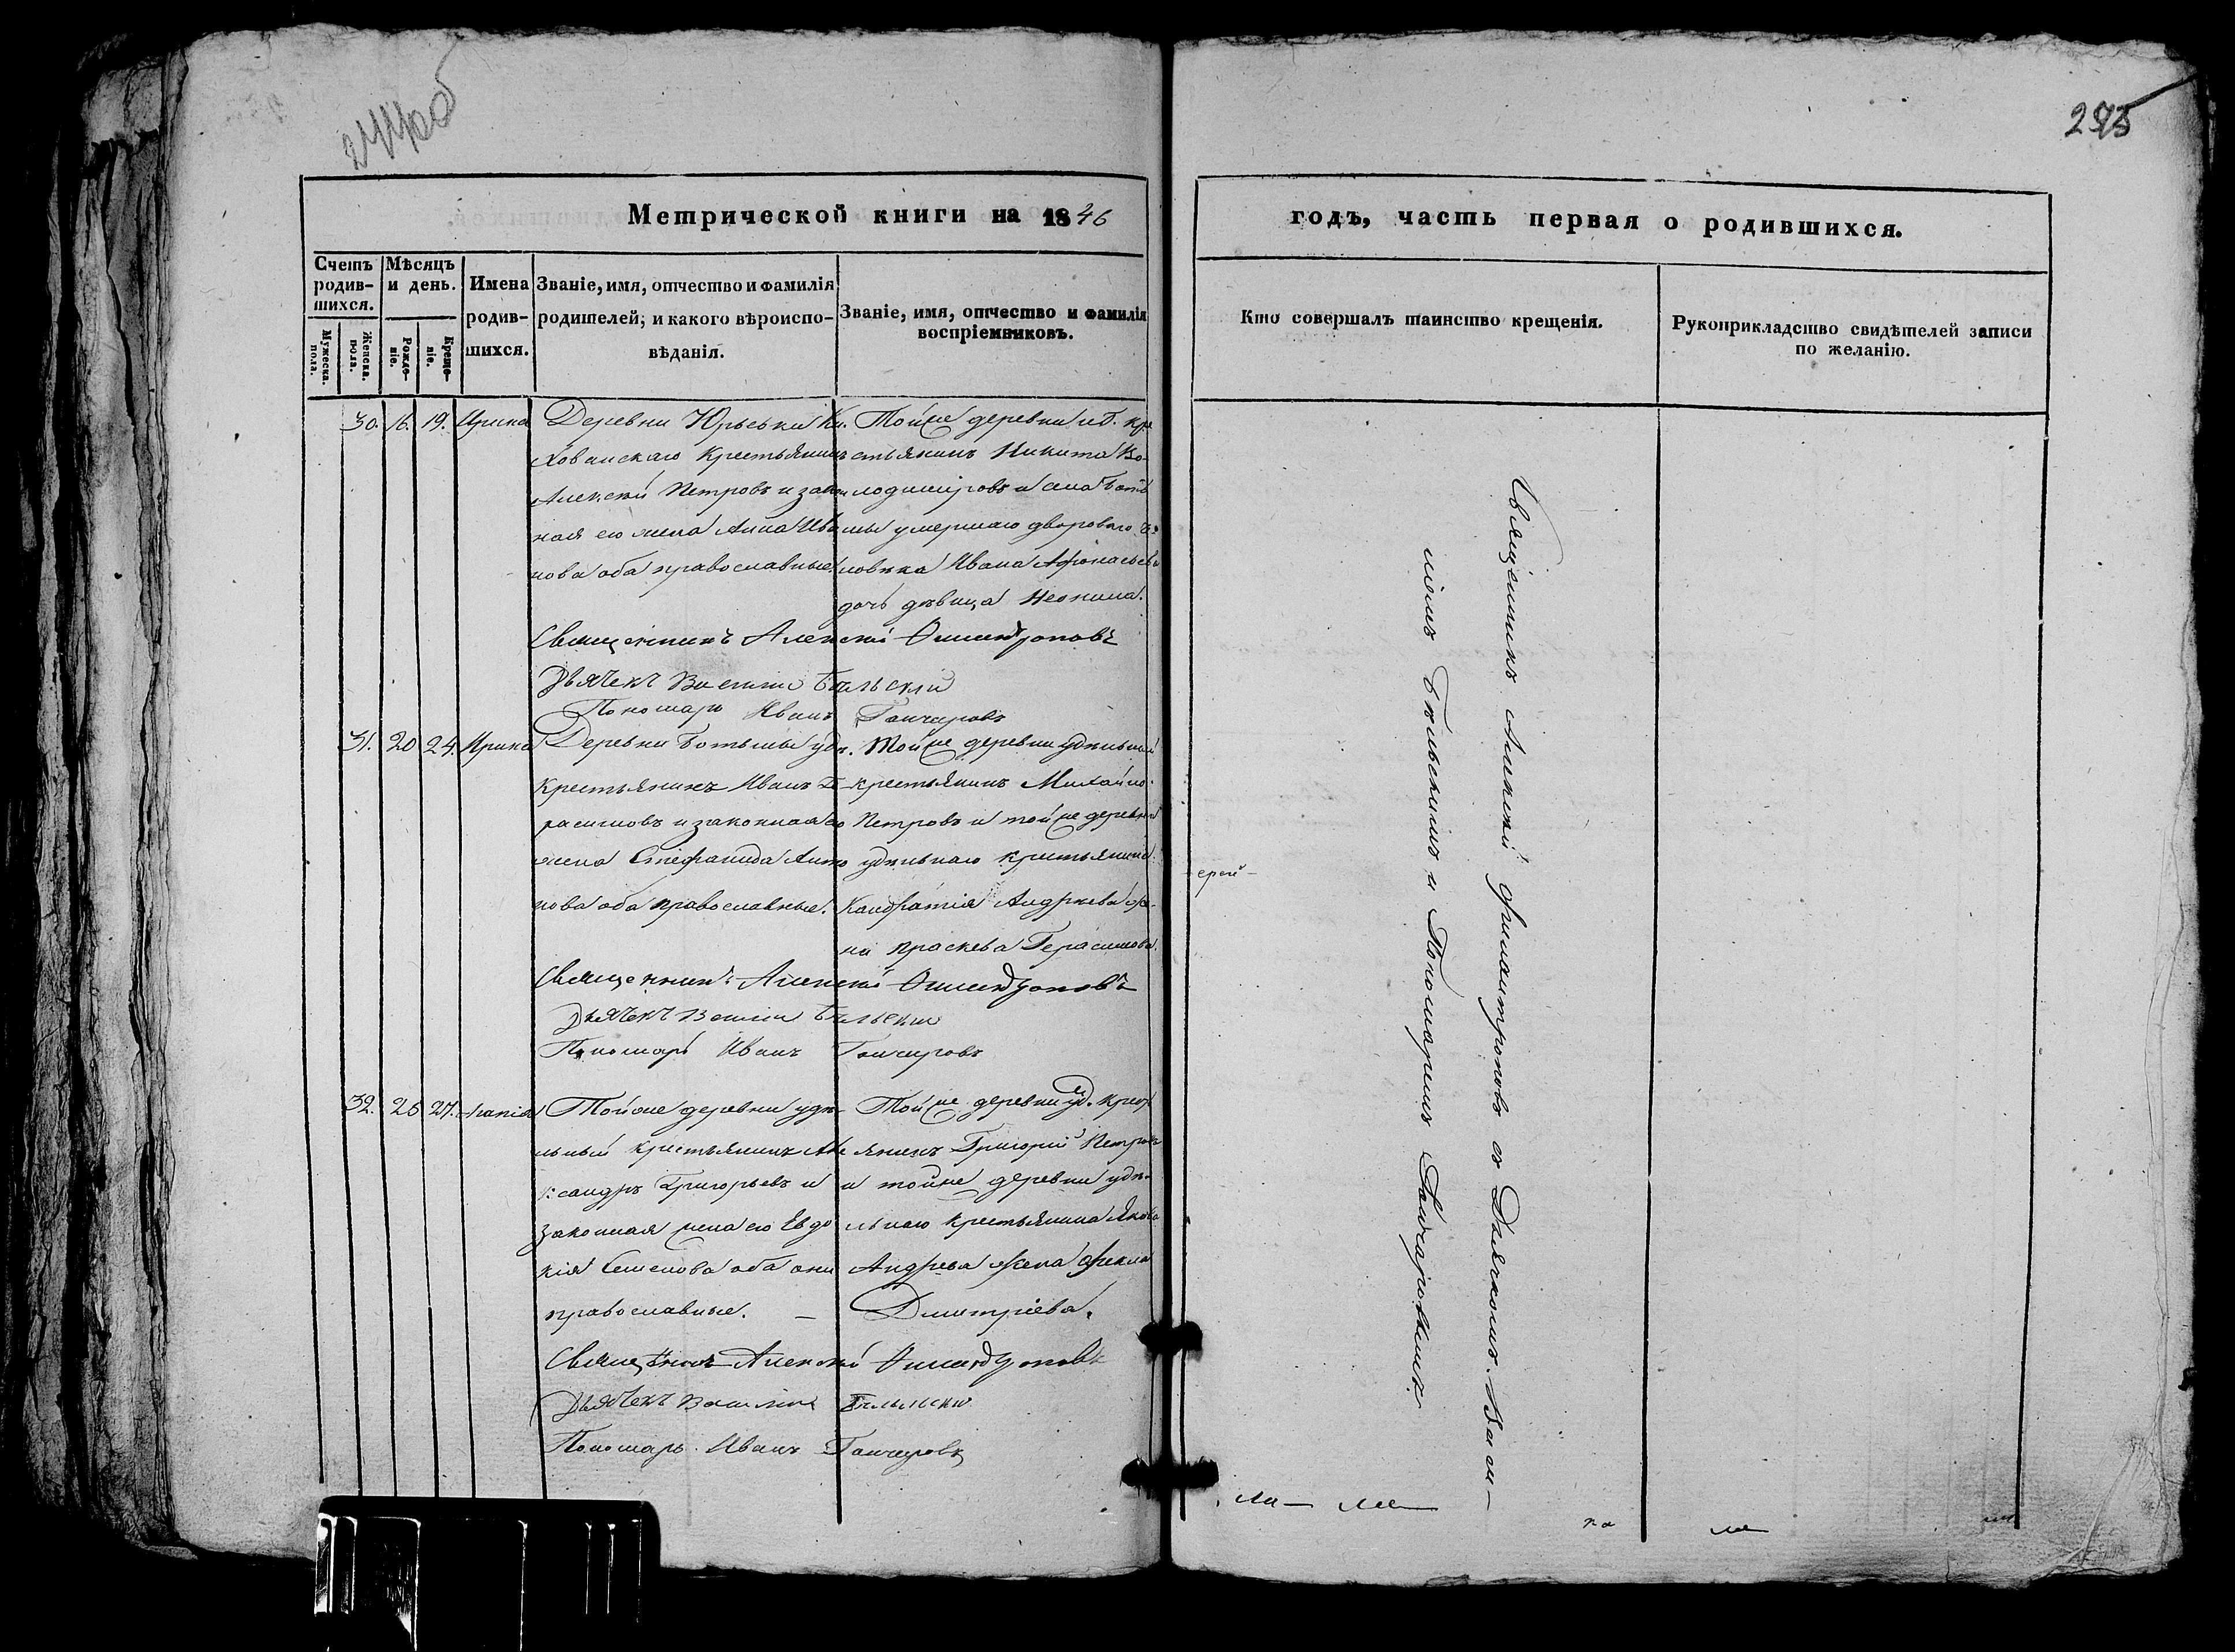 295
Метрической книги на 1846
годъ, часть первая о родившихся.
Счетъ родив-шихся.
Мужеска. пола.
Женска. пола.
Мѣсяцъ и день.
Рожде-ніе.
Креще-ніе.
Имена родив-шихся.
Званіе, имя, отчество и фамилія родителей, и какого вѣроиспо-вѣданія.
Званіе, имя, отчество и фамилія воспріемниковъ.
Кто совершалъ таинство крещенія.
Рукоприкладство свидѣтелей записи по желанію.
30. 16. 19. Ирина
Деревни Юрьевки Кн.
Хованскаго Крестьянинъ
Алексѣй Петровъ и закон
ная его жена Анна Ива
нова оба православные.
Тойже деревни кре
стьянинъ Никита Во-
лодимiровъ и села
умершаго двороваго че
ловѣка Ивана Афонасьева
дочь дѣвица Неонила.
Священникъ Алексѣй
Дьячекъ Василій Бѣльскій
Пономарь Иванъ Гончаровъ
31. 20 24. Ирина
Деревни Ботьмы удѣ.
Крестьянинъ Иванъ Ге-
расимовъ и законная его
жена Стефанида Анто
нова оба православные.
Тойже деревни удѣльный
крестьянинъ Михайло
Петровъ и тойже деревни
удѣльнаго крестьянина
Андреева же-
на Праскева Герасимова.
Священникъ Алексѣй
Дьячекъ Василій Бѣльскій
Пономарь Иванъ Гончаровъ
32. 26 27. Агапія
Тойже деревни удѣ-
льный крестьянинъ Але
ксандръ Григорьевъ и
законная жена его Евдо
кія Семенова оба они
православные.
Тойже деревни уд. крест
янинъ Григорій Петровъ
и тойже деревни удѣ-
льнаго крестьянина Якова
Андреева жена Фекла
Дмитріева.
Священникъ Алексѣй
Дьячекъ Василій Бѣльскій
Пономарь Иванъ Гончаровъ
Священникъ Алексѣй съ Дьячкомъ Васи-
ліемъ Бѣльскимъ и Пономаремъ Гончаровымъ.